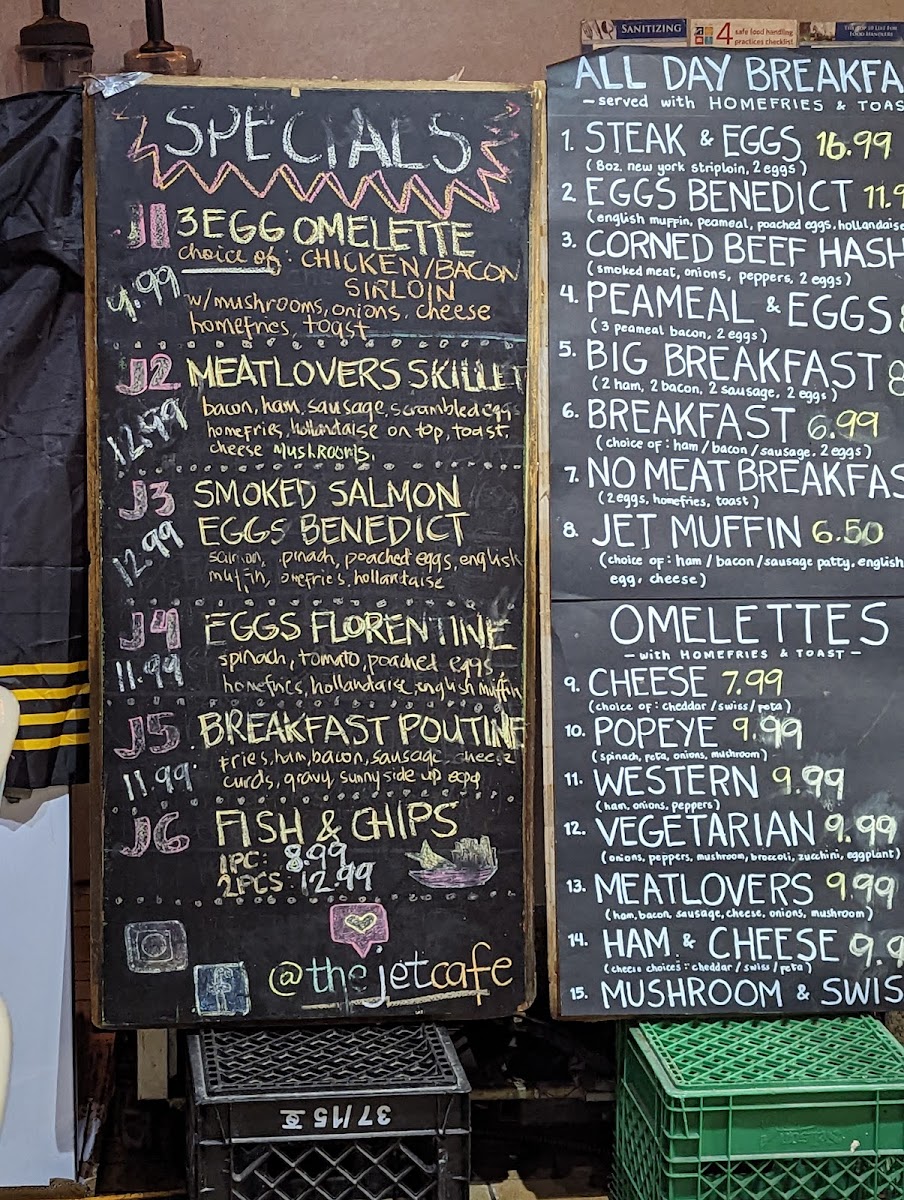 SANITIZING
4 safe food handling
practices checklist
THE TOP 10 LIST FOR
FOOD HANDLERS
SPECIALS
J1 3 EGG OMELETTE
choice of: CHICKEN/BACON
SIRLOIN
9.99
w/mushrooms, onions, cheese
homefries, toast
J2 MEATLOVERS SKILLET
12.99
bacon, ham, sausage, scrambled eggs
homefries, hollandaise on top, toast,
cheese MUSHROOMS.
J3 SMOKED SALMON
EGGS BENEDICT
12.99
poached eggs, english
hollandaise
J4 EGGS FLORENTINE
11.99
spinach, tomato, poached eggs
homefries, hollandaise, english muffin
J5 BREAKFAST POUTINE
11.99
fries, ham, bacon, sausage,
curds, gravy, sunny side up egg
J6 FISH & CHIPS
1PC: 8.99
2PCS: 12.99
@thejetcafe
ALL DAY BREAKFA
- served with HOMEFRIES & TOAS
1. STEAK & EGGS 16.99
(8oz. new york striploin, 2 eggs)
2. EGGS BENEDICT 11.9
(english muffin, peameal, poached eggs, hollandaise
3. CORNED BEEF HASH
(smoked meat, onions, peppers, 2 eggs)
4. PEAMEAL & EGGS 8
(3 peameal bacon, 2 eggs)
5. BIG BREAKFAST 8
(2 ham, 2 bacon, 2 sausage, 2 eggs)
6. BREAKFAST 6.99
(choice of: ham / bacon / sausage, 2 eggs)
7. NO MEAT BREAKFAS
(2 eggs, homefries, toast)
8. JET MUFFIN 6.50
(choice of: ham / bacon / sausage patty, english
egg, cheese)
OMELETTES
- with HOMEFRIES & TOAST -
9. CHEESE 7.99
(choice of: cheddar / swiss / feta)
10. POPEYE 9.99
(spinach, feta, onions, mushroom)
11. WESTERN 9.99
(ham, onions, peppers)
12. VEGETARIAN 9.99
(onions, peppers, mushroom, broccoli, zucchini, eggplant)
13. MEATLOVERS 9.99
(ham, bacon, sausage, cheese, onions, mushroom)
14. HAM & CHEESE 9.9
(cheese choices: cheddar / swiss / feta)
15. MUSHROOM & SWIS
37/15